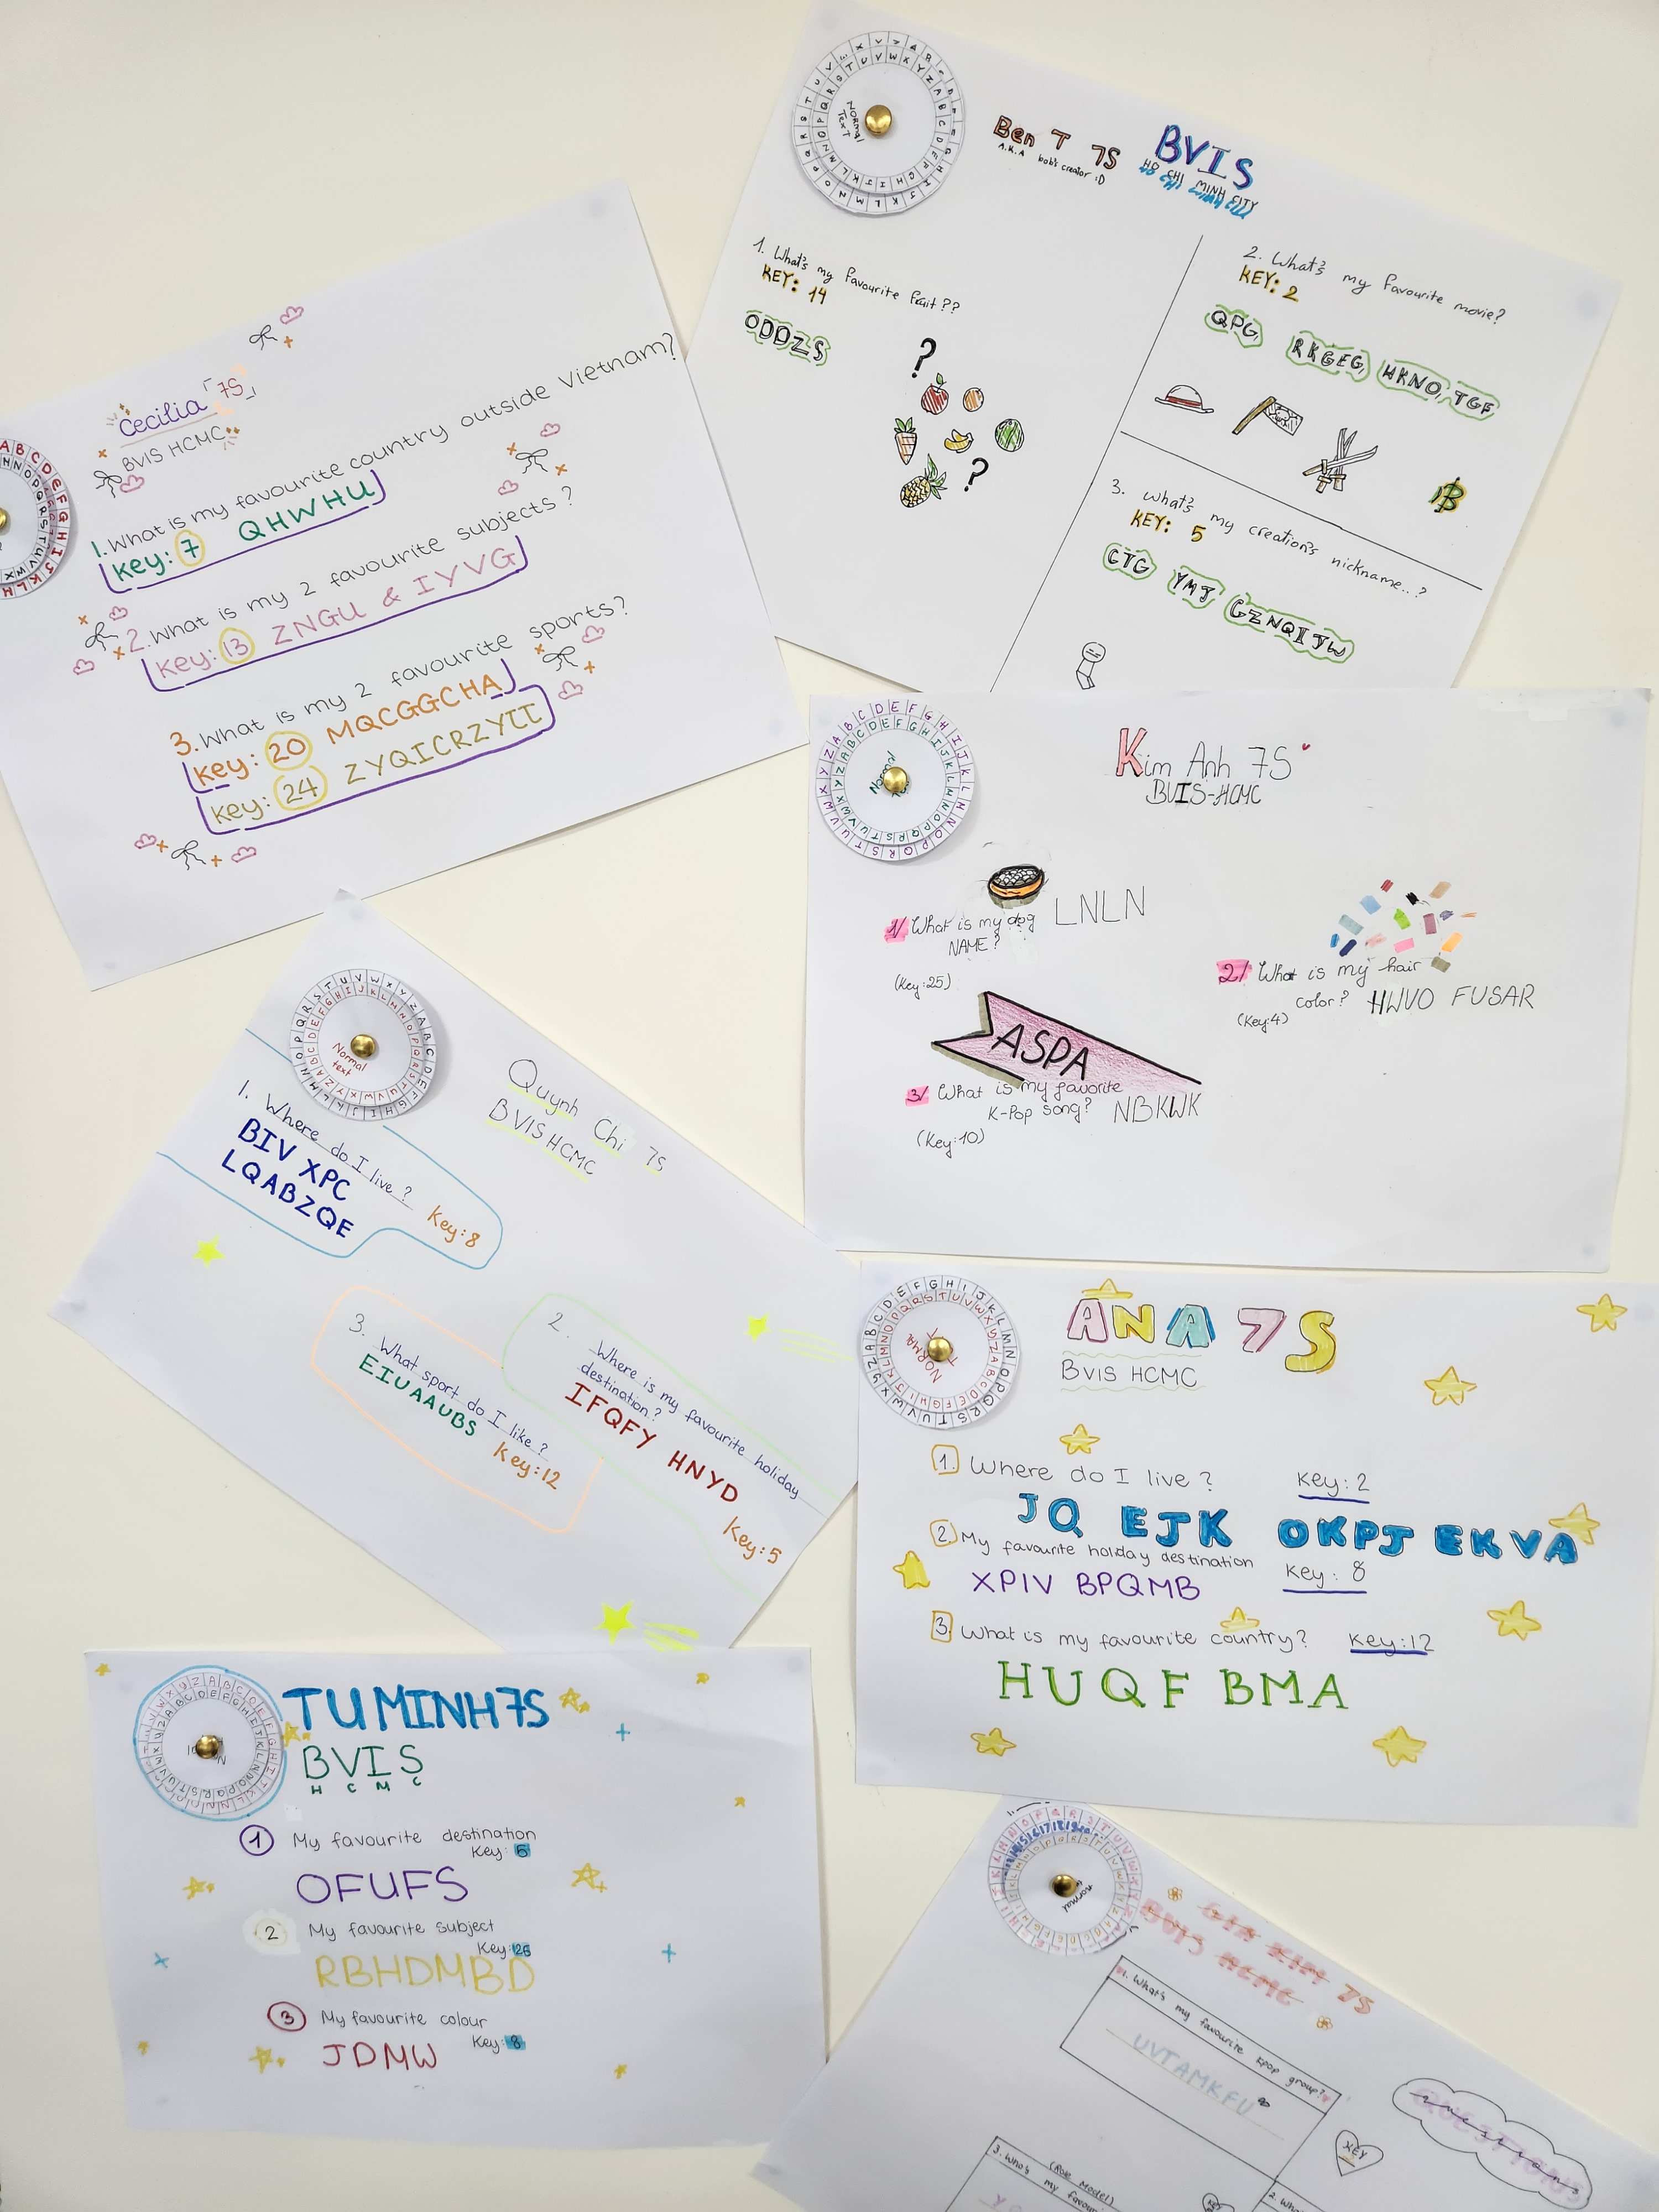 Ben T 7S BVIS
A.K.A bob's creator :D
HO CHI MINH CITY
NORMAL TEXT
1. What's my favourite fruit??
KEY: 14
ODDZS
2. What's my favourite movie?
KEY: 2
QPG, RKGEG, HKNO, TGF
3. What's my creation's nickname...?
KEY: 5
CTG YMJ GZNQIJW
Cecilia 7S
BVIS HCMC
1. What is my favourite country outside Vietnam?
key: 7 QHWHU
2. What is my 2 favourite subjects?
key: 13 ZNGU & IYVG
3. What is my 2 favourite sports?
key: 20 MQCGGCHA
key: 24 ZYQICRZYJJ
Kim Anh 7S
BVIS-HCMC
Normal
1/ What is my dog NAME? LNLN
(Key:25)
2/ What is my hair
color? HWVO FUSAR
(Key:4)
ASPA
3/ What is my favorite
K-Pop song? NBKWK
(Key:10)
Quynh Chi 7S
BVIS HCMC
Normal text
1. Where do I live? Key:8
BIV XPC
LQABZQE
2. Where is my favourite holiday
destination?
IFQFY HNYD
Key:5
3. What sport do I like?
EIUAAUBS Key:12
ANA 7S
BVIS HCMC
1. Where do I live? Key: 2
JQ EJK OKPJ EKVA
2. My favourite holiday destination Key: 8
XPIV BPQMB
3. What is my favourite country? Key:12
HUQF BMA
TUMINH 7S
BVIS
HCMC
1 My favourite destination
Key: 5
OFUFS
2 My favourite subject
Key:
RBHDMBD
3 My favourite colour
Key: 8
JDMW
GIA KIM 7S
BVIS HCMC
normal
1. What's my favourite kpop group?
UVTAMKFU
KEY
QUESTIONS
3. Who's my favou
(Role Model)